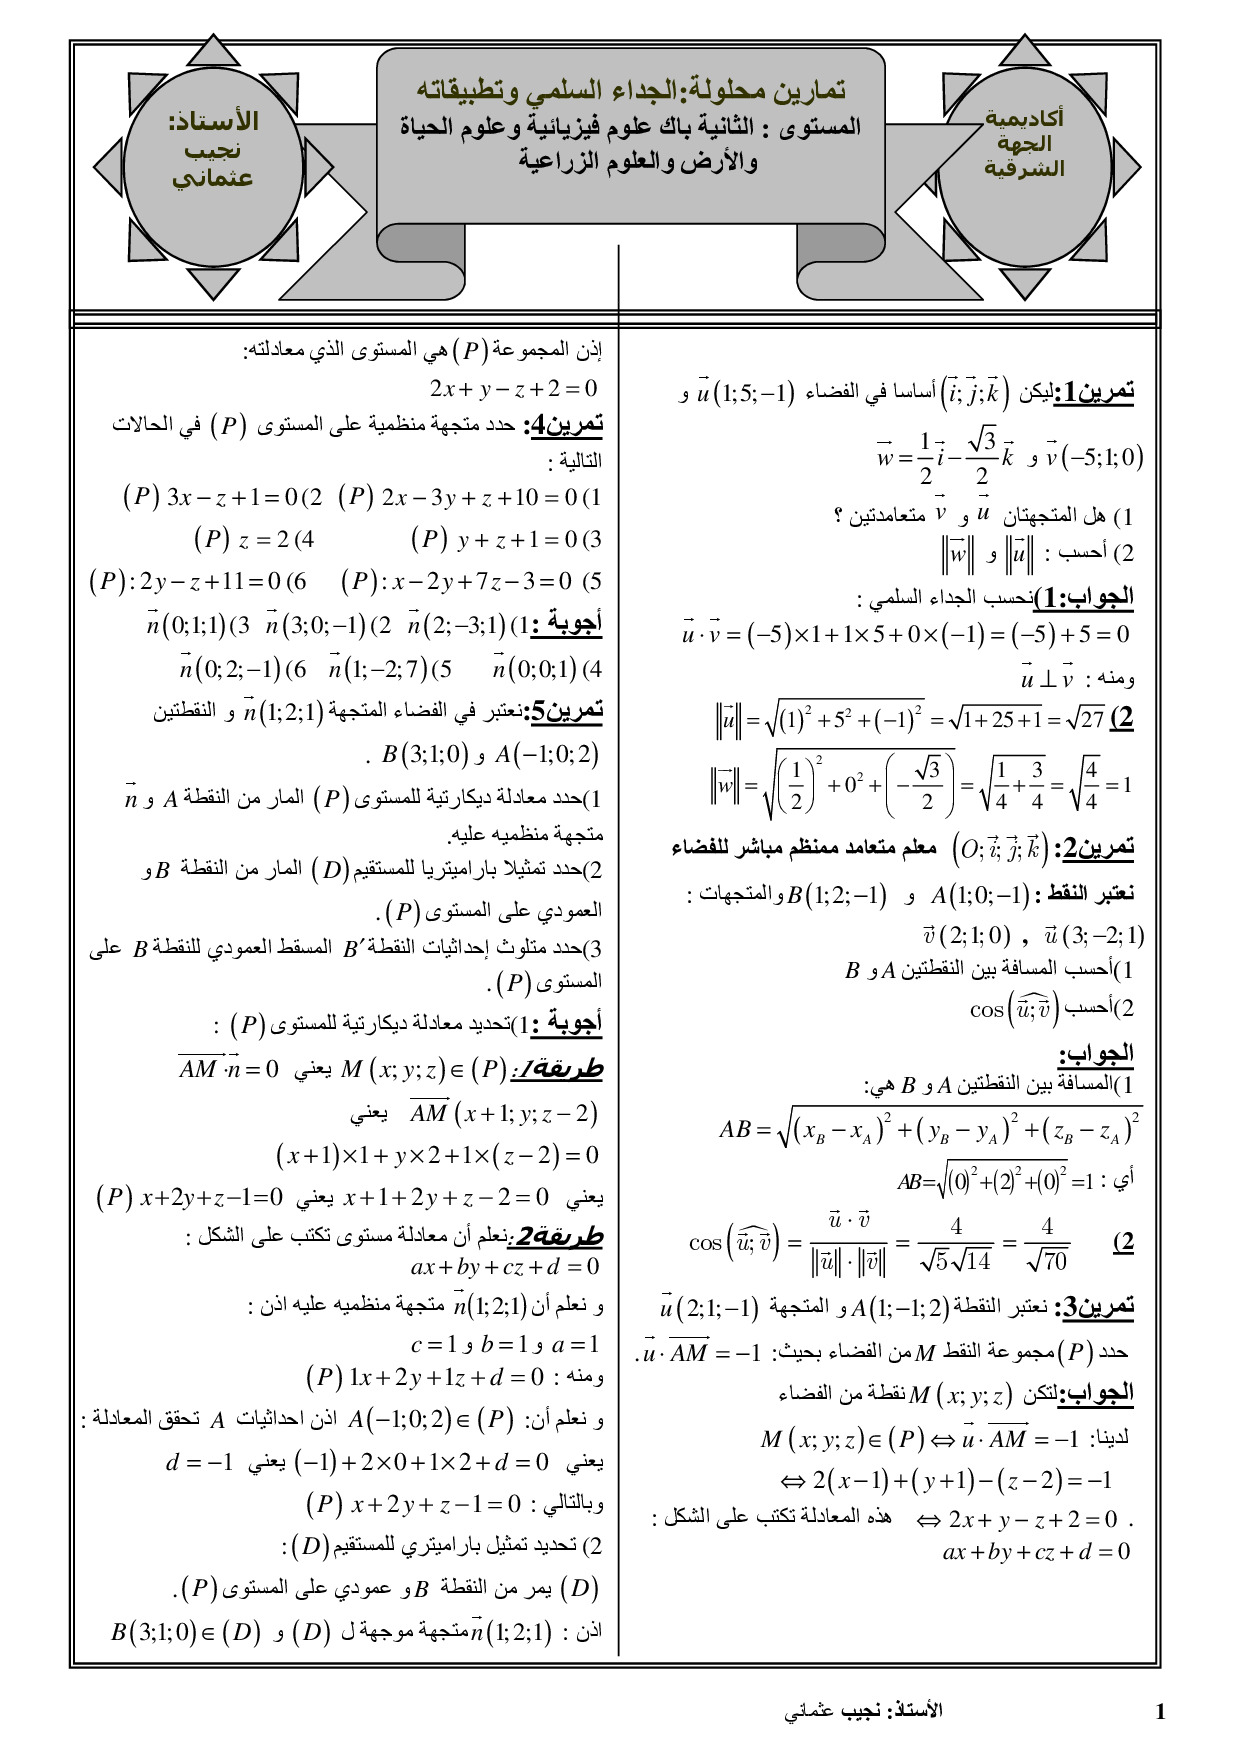 أكاديمية
الجهة
الشرقية
تمارين محلولة:الجداء السلمي وتطبيقاته
المستوى : الثانية باك علوم فيزيائية وعلوم الحياة
والأرض والعلوم الزراعية
الأستاذ:
نجيب
عثماني
تمرين1:ليكن (i⃗; j⃗; k⃗) أساسا في الفضاء u⃗(1;5;−1) و
v⃗(−5;1;0) و w⃗ = 1/2 i⃗ − √3/2 k⃗
1) هل المتجهتان u⃗ و v⃗ متعامدتين ؟
2) أحسب : ‖u⃗‖ و ‖w⃗‖
الجواب:1)نحسب الجداء السلمي :
u⃗ · v⃗ = (−5)×1+1×5+0×(−1) = (−5)+5 = 0
ومنه : u⃗ ⊥ v⃗
2) ‖u⃗‖ = √((1)² + 5² + (−1)²) = √(1+25+1) = √27
‖w⃗‖ = √((1/2)² + 0² + (−√3/2)) = √(1/4 + 3/4) = √(4/4) = 1
تمرين2: (O; i⃗; j⃗; k⃗) معلم متعامد ممنظم مباشر للفضاء
نعتبر النقط : A(1;0;−1) و B(1;2;−1) والمتجهات :
u⃗(3;−2;1) , v⃗(2;1;0)
1)أحسب المسافة بين النقطتين A و B
2)أحسب cos(u⃗;v⃗)
الجواب:
1)المسافة بين النقطتين A و B هي:
AB = √((x_B − x_A)² + (y_B − y_A)² + (z_B − z_A)²)
أي : AB=√((0)²+(2)²+(0)²)=1
2) cos(u⃗;v⃗) = (u⃗ · v⃗)/(‖u⃗‖·‖v⃗‖) = 4/(√5√14) = 4/√70
تمرين3: نعتبر النقطة A(1;−1;2) و المتجهة u⃗(2;1;−1)
حدد (P) مجموعة النقط M من الفضاء بحيث: u⃗ · AM⃗ = −1.
الجواب:لتكن M(x;y;z) نقطة من الفضاء
لدينا: M(x;y;z)∈(P) ⇔ u⃗ · AM⃗ = −1
⇔ 2(x−1)+(y+1)−(z−2) = −1
⇔ 2x+y−z+2 = 0 . هذه المعادلة تكتب على الشكل :
ax+by+cz+d = 0
إذن المجموعة (P) هي المستوى الذي معادلته:
2x+y−z+2 = 0
تمرين4: حدد متجهة منظمية على المستوى (P) في الحالات
التالية :
1) (P) 2x−3y+z+10 = 0 2) (P) 3x−z+1 = 0
3) (P) y+z+1 = 0 4) (P) z = 2
5) (P): x−2y+7z−3 = 0 6) (P): 2y−z+11 = 0
أجوبة :1) n⃗(2;−3;1) 2) n⃗(3;0;−1) 3) n⃗(0;1;1)
4) n⃗(0;0;1) 5) n⃗(1;−2;7) 6) n⃗(0;2;−1)
تمرين5:نعتبر في الفضاء المتجهة n⃗(1;2;1) و النقطتين
A(−1;0;2) و B(3;1;0) .
1)حدد معادلة ديكارتية للمستوى (P) المار من النقطة A و n⃗
متجهة منظميه عليه.
2)حدد تمثيلا باراميتريا للمستقيم (D) المار من النقطة B و
العمودي على المستوى (P).
3)حدد متلوث إحداثيات النقطة B′ المسقط العمودي للنقطة B على
المستوى (P).
أجوبة :1)تحديد معادلة ديكارتية للمستوى (P) :
طريقة1: M(x;y;z)∈(P) يعني AM⃗·n⃗ = 0
AM⃗(x+1; y; z−2) يعني
(x+1)×1+y×2+1×(z−2) = 0
يعني x+1+2y+z−2 = 0 يعني (P) x+2y+z−1=0
طريقة2:نعلم أن معادلة مستوى تكتب على الشكل :
ax+by+cz+d = 0
و نعلم أن n⃗(1;2;1) متجهة منظميه عليه اذن :
a = 1 و b = 1 و c = 1
ومنه : (P) 1x+2y+1z+d = 0
و نعلم أن: A(−1;0;2)∈(P) اذن احداثيات A تحقق المعادلة :
يعني (−1)+2×0+1×2+d = 0 يعني d = −1
وبالتالي : (P) x+2y+z−1 = 0
2) تحديد تمثيل باراميتري للمستقيم (D):
(D) يمر من النقطة B و عمودي على المستوى (P).
اذن : n⃗(1;2;1) متجهة موجهة ل (D) و B(3;1;0)∈(D)
الأستاذ: نجيب عثماني
1